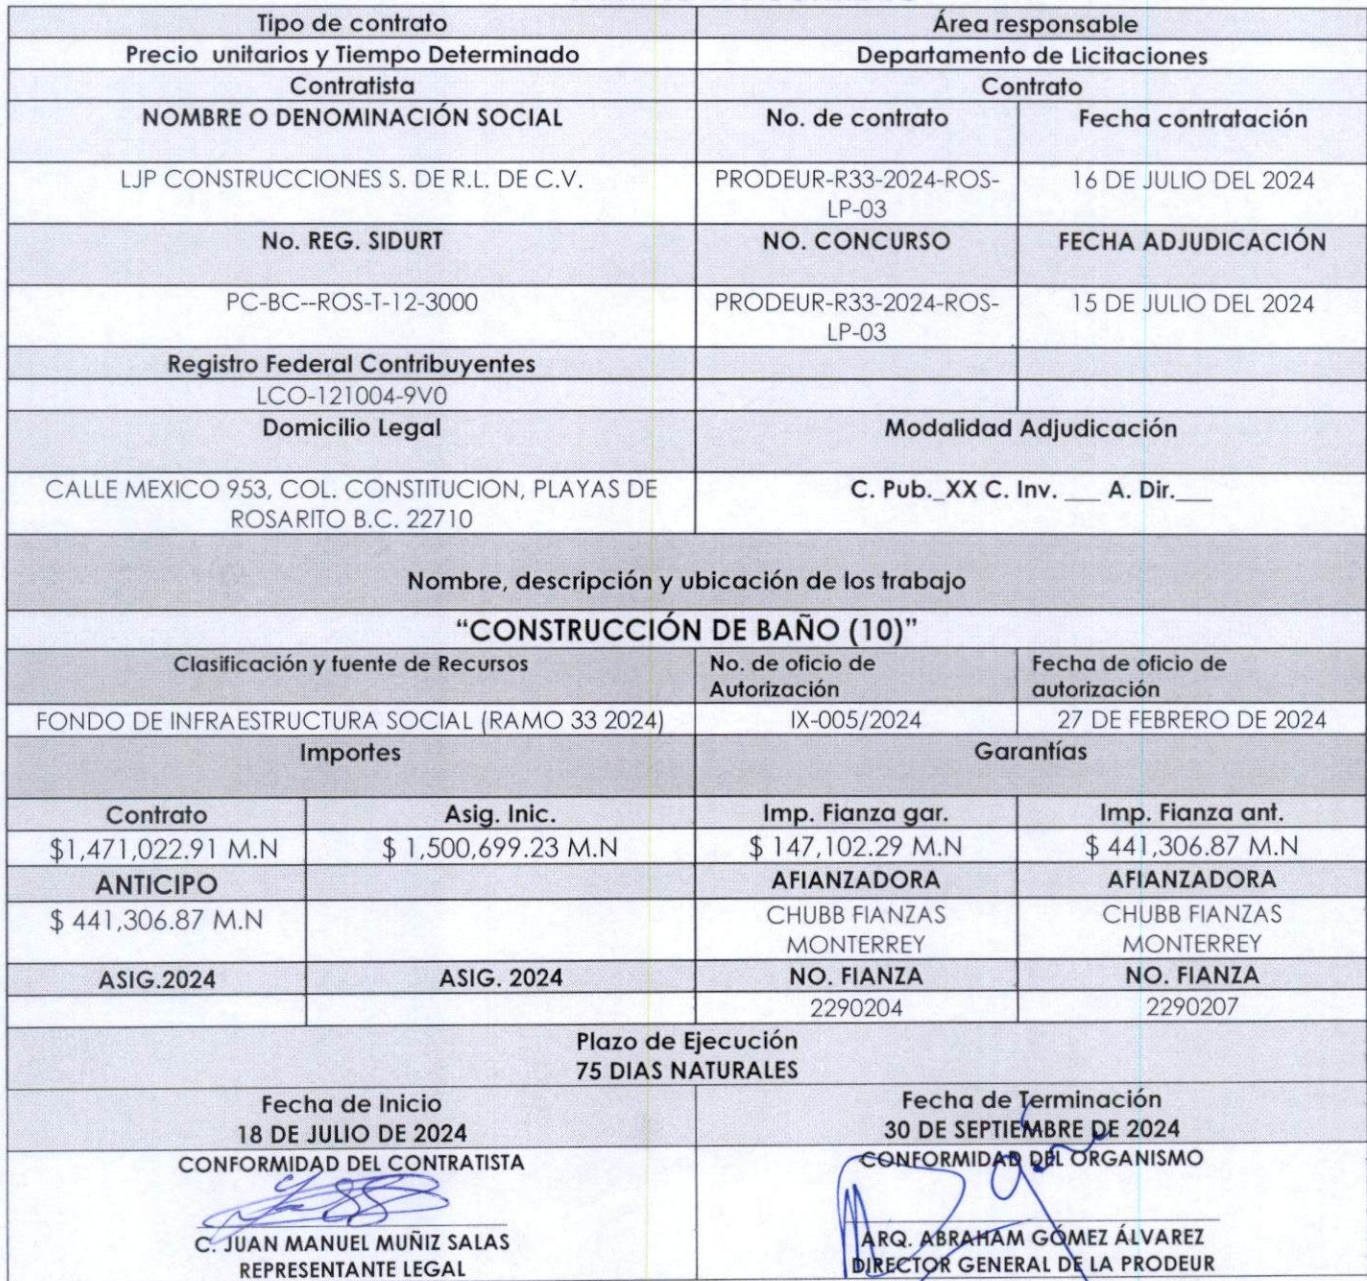 Tipo de contrato Área responsable
Precio unitarios y Tiempo Determinado Departamento de Licitaciones
Contratista Contrato
NOMBRE O DENOMINACIÓN SOCIAL No. de contrato Fecha contratación
LJP CONSTRUCCIONES S. DE R.L. DE C.V. PRODEUR-R33-2024-ROS- 16 DE JULIO DEL 2024
LP-03
No. REG. SIDURT NO. CONCURSO FECHA ADJUDICACIÓN
PC-BC--ROS-T-12-3000 PRODEUR-R33-2024-ROS- 15 DE JULIO DEL 2024
LP-03
Registro Federal Contribuyentes
LCO-121004-9V0
Domicilio Legal Modalidad Adjudicación
CALLE MEXICO 953, COL. CONSTITUCION, PLAYAS DE C. Pub._XX C. Inv. ___ A. Dir.___
ROSARITO B.C. 22710
Nombre, descripción y ubicación de los trabajo
“CONSTRUCCIÓN DE BAÑO (10)”
Clasificación y fuente de Recursos No. de oficio de Fecha de oficio de
Autorización autorización
FONDO DE INFRAESTRUCTURA SOCIAL (RAMO 33 2024) IX-005/2024 27 DE FEBRERO DE 2024
Importes Garantías
Contrato Asig. Inic. Imp. Fianza gar. Imp. Fianza ant.
$1,471,022.91 M.N $ 1,500,699.23 M.N $ 147,102.29 M.N $ 441,306.87 M.N
ANTICIPO AFIANZADORA AFIANZADORA
$ 441,306.87 M.N CHUBB FIANZAS CHUBB FIANZAS
MONTERREY MONTERREY
ASIG.2024 ASIG. 2024 NO. FIANZA NO. FIANZA
2290204 2290207
Plazo de Ejecución
75 DIAS NATURALES
Fecha de Inicio Fecha de Terminación
18 DE JULIO DE 2024 30 DE SEPTIEMBRE DE 2024
CONFORMIDAD DEL CONTRATISTA CONFORMIDAD DEL ORGANISMO
C. JUAN MANUEL MUÑIZ SALAS ARQ. ABRAHAM GÓMEZ ÁLVAREZ
REPRESENTANTE LEGAL DIRECTOR GENERAL DE LA PRODEUR